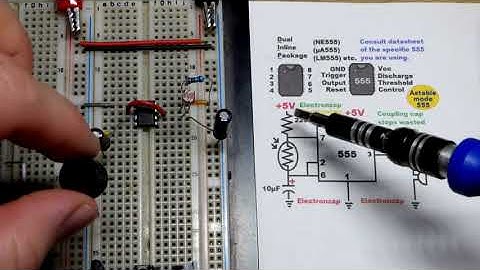 Dual (NE555) Consult datasheet
Inline (µA555) of the specific 555
Package (LM555) etc. you are using.
1 8 GND Vcc
2 7 Trigger 555 Discharge
3 6 Output Threshold
4 5 Reset Control
Astable
mode
555
+5V Electronzap +5V
Coupling cap
stops wasted
555
3
2
6
1
10µF
+
Electronzap Electronzap